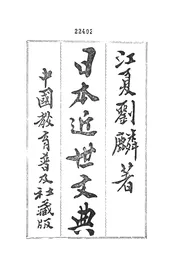 22402
江夏劉麟著
日本近世文典
中國教育普及社藏版